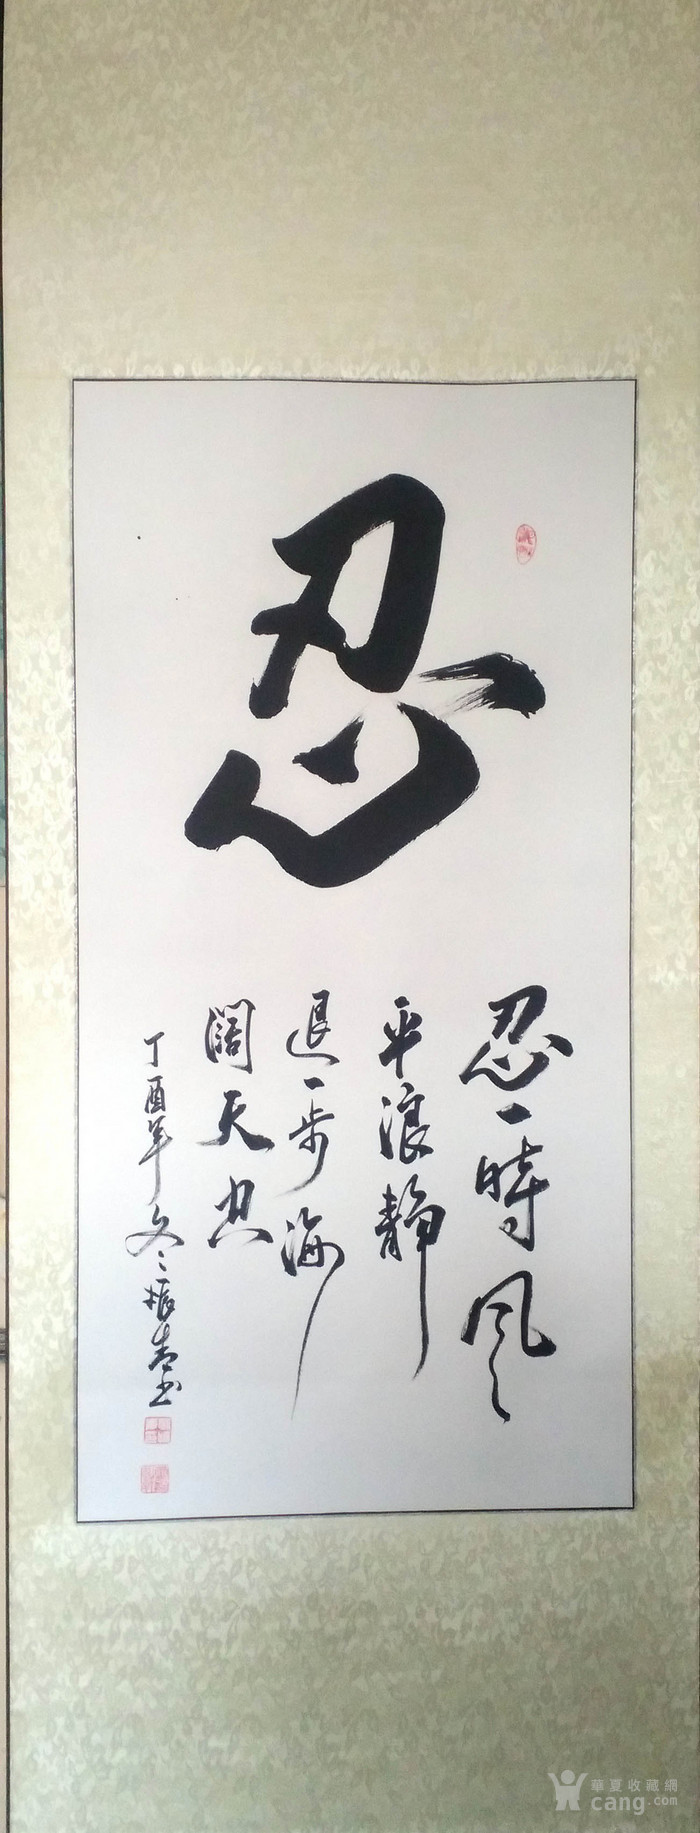 忍
忍一時風
平浪静
退一步海
阔天空
丁酉年冬振春书
華夏收藏網
cang.com